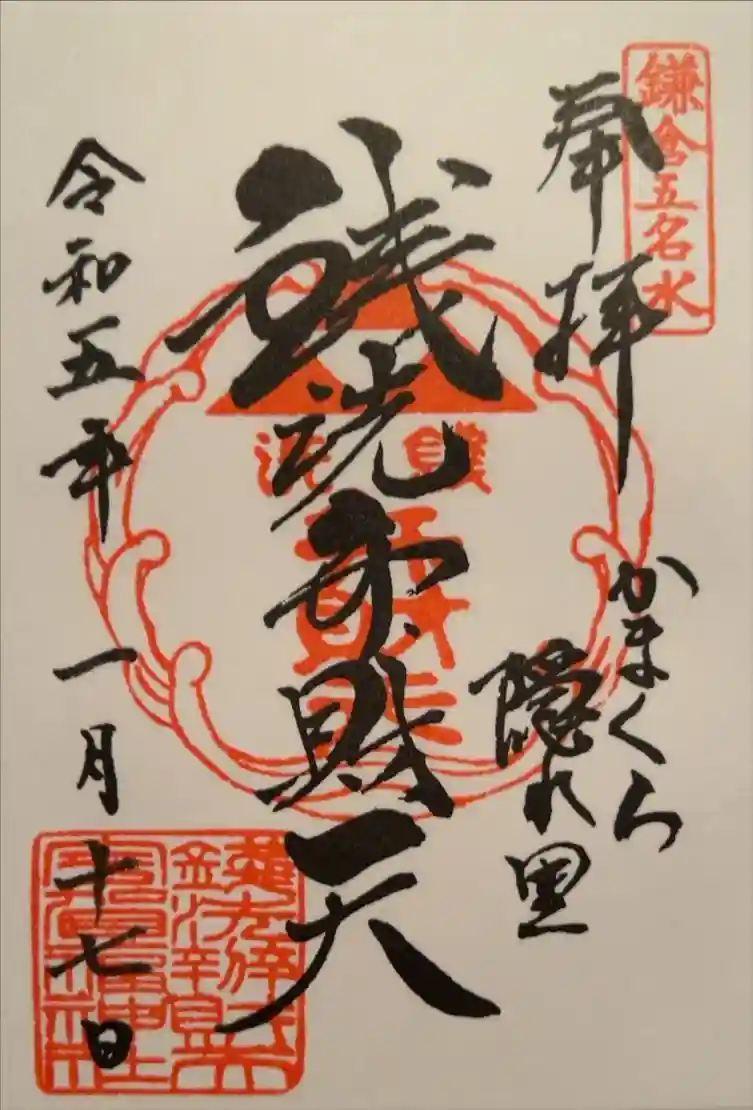 鎌倉五名水
奉拝
かまくら
隠れ里
銭洗弁財天
銭洗
令和五年一月十七日